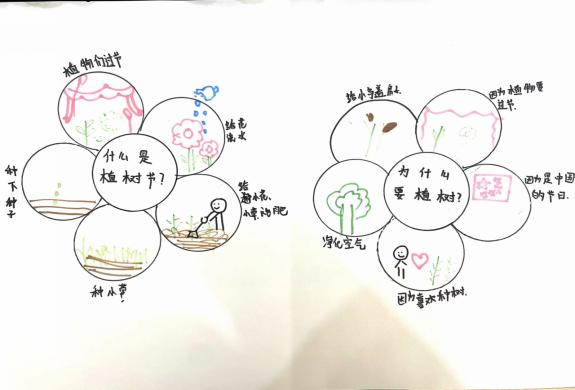 植物们过节
给花
浇水
什么是
植树节?
种下种子
给
小草施肥
种小草
给小鸟盖
因为植物要
过节.
为什么
要植树?
因为是中国
的节日.
净化空气
因为喜欢种树.